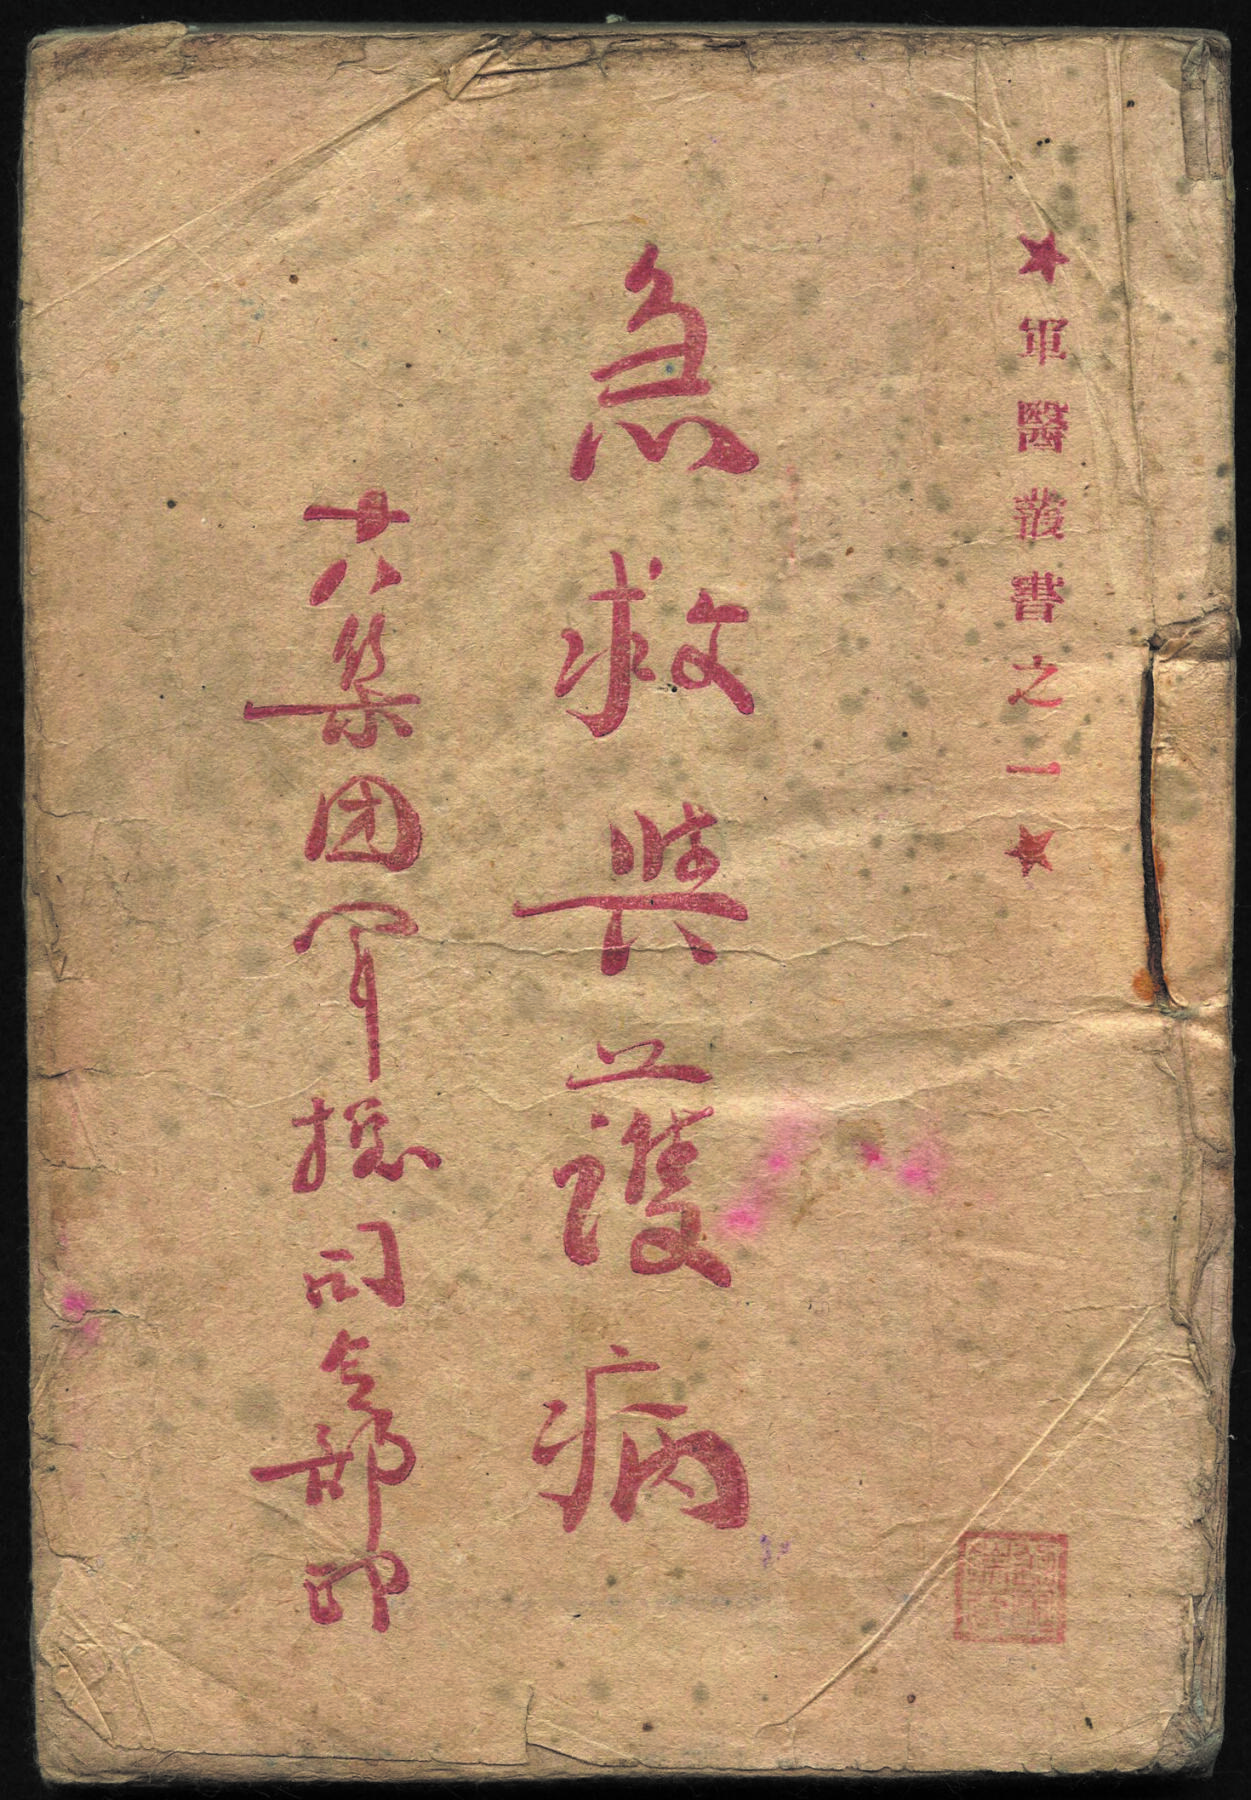 ★軍醫叢書之一★
急救與護病
廿八集团军総司令部印